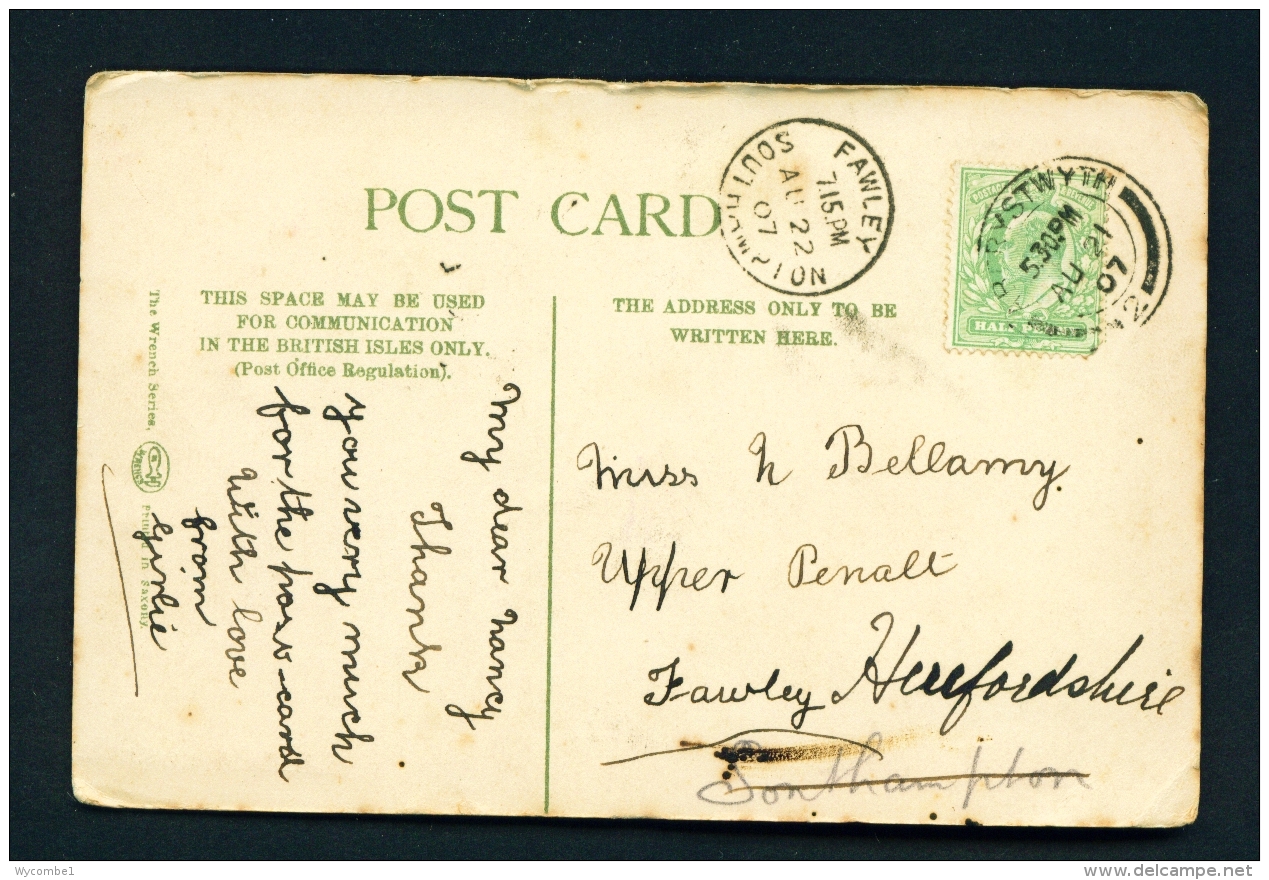 POST CARD
THIS SPACE MAY BE USED
FOR COMMUNICATION
IN THE BRITISH ISLES ONLY.
(Post Office Regulation).
THE ADDRESS ONLY TO BE
WRITTEN HERE.
FAWLEY
7.15.PM
AU 22
07
SOUTHAMPTON
ABERYSTWYTH
5.30.PM
AU 21
07
POSTAGE
HALF PENNY
My dear Nancy
Thank
you very much
for the post-card
With love
from
Girlie
The Wrench Series,
WRENCH
Printed in Saxony.
Miss N Bellamy
Upper Penalt
Fawley Herefordshire
Southampton
Wycombe1
delcampe.net